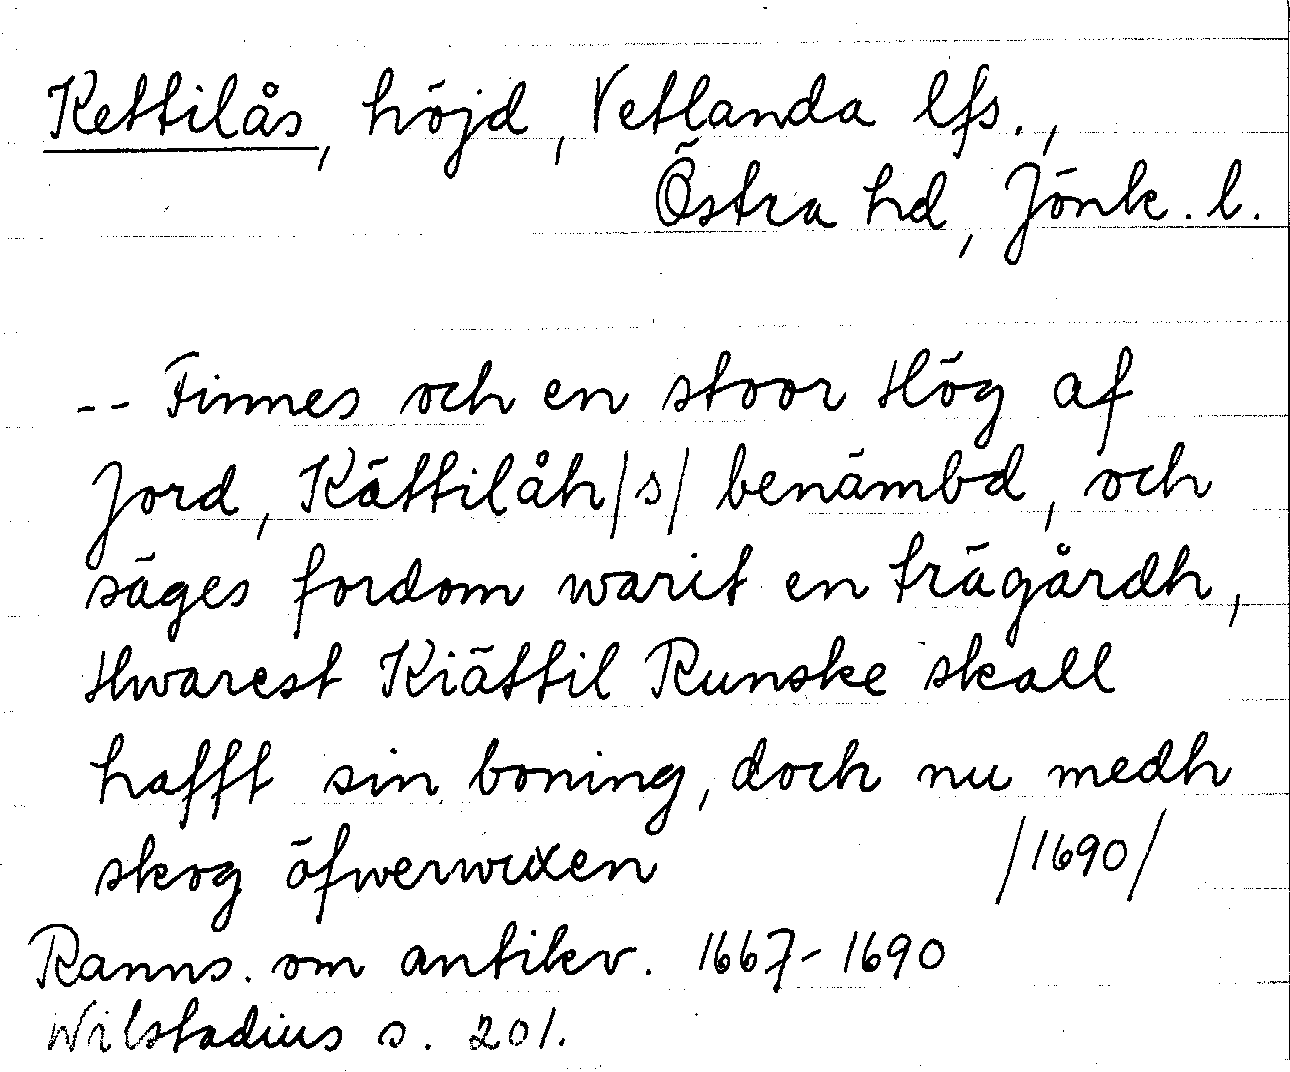 Kettilås, höjd, Vetlanda lfs.,
Östra hd, Jönk. l.
-- Finnes och en stoor Hög af
Jord, Kättilåh/s/ benämbd, och
säges fordom warit en trägårdh,
Hwarest Kiättil Runske skall
hafft sin boning, doch nu medh
skog öfwerwuxen /1690/
Ranns. om antikv. 1667-1690
Wilstadius s. 201.